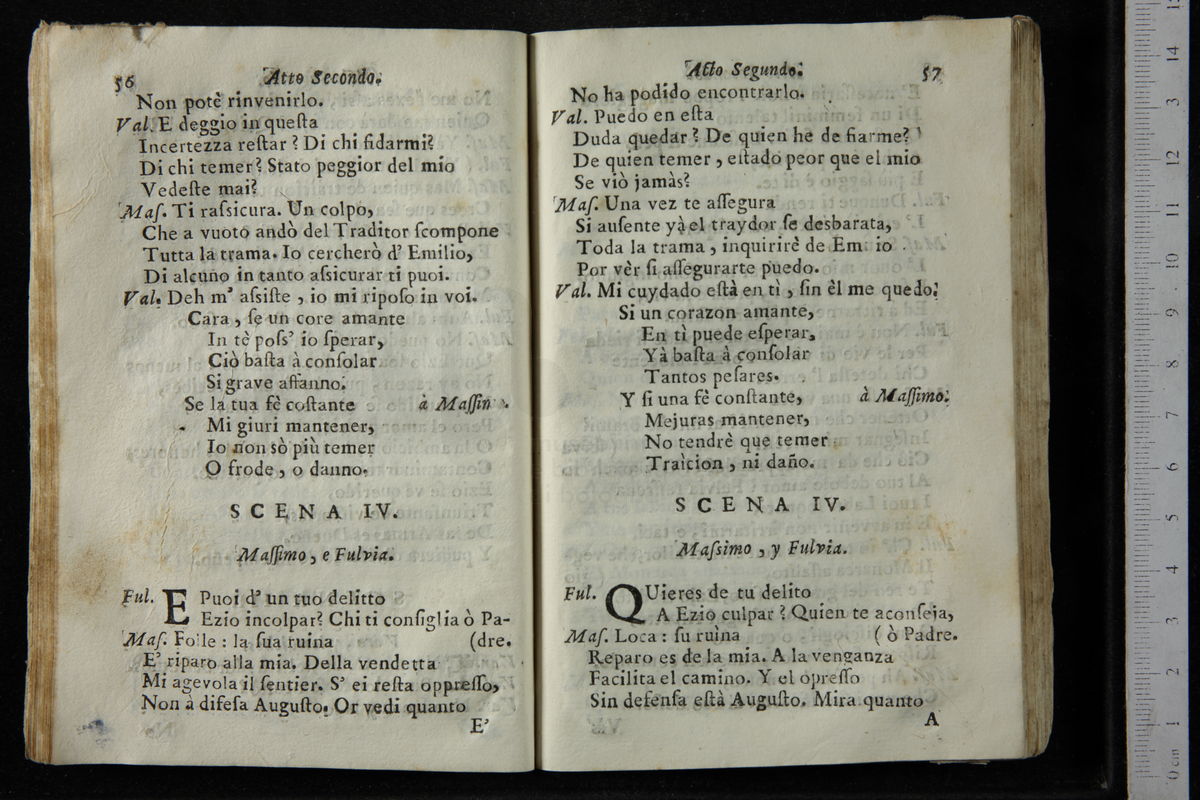 56 Atto Secondo.
Non potè rinvenirlo.
Val. E deggio in queſta
Incertezza reſtar ? Di chi fidarmi?
Di chi temer? Stato peggior del mio
Vedeſte mai?
Maſ. Ti raſsicura. Un colpo,
Che a vuoto andò del Traditor ſcompone
Tutta la trama. Io cercherò d' Emilio,
Di alcuno in tanto aſsicurar ti puoi.
Val. Deh m' aſsiſte , io mi ripoſo in voi.
Cara , ſe un core amante
In tè poſs' io ſperar,
Ciò baſta à conſolar
Si grave affanno.
Se la tua fè coſtante à Maſſim
Mi giuri mantener,
Io non sò più temer
O frode , o danno.
SCENA IV.
Maſſimo , e Fulvia.
Ful. E Puoi d' un tuo delitto
Ezio incolpar? Chi ti conſiglia ò Pa-
Maſ. Folle : la ſua ruina (dre.
E' riparo alla mia. Della vendetta
Mi agevola il ſentier. S' ei reſta oppreſſo,
Non à difeſa Auguſto. Or vedi quanto
E'
Acto Segundo. 57
No ha podido encontrarlo.
Val. Puedo en eſta
Duda quedar ? De quien he de fiarme?
De quien temer , eſtado peor que el mio
Se viò jamàs?
Maſ. Una vez te aſſegura
Si auſente yà el traydor ſe desbarata,
Toda la trama , inquirirè de Em io
Por vèr ſi aſſegurarte puedo.
Val. Mi cuydado eſtà en tì , ſin èl me quedo.
Si un corazon amante,
En tì puede eſperar,
Yà baſta à conſolar
Tantos peſares.
Y ſi una fè conſtante, à Maſſimo.
Mejuras mantener,
No tendrè que temer
Traìcion , ni daño.
SCENA IV.
Maſsimo , y Fulvia.
Ful. QUieres de tu delito
A Ezio culpar ? Quien te aconſeja,
Maſ. Loca : ſu ruìna ( ò Padre.
Reparo es de la mia. A la venganza
Facilita el camino. Y el opreſſo
Sin defenſa eſtà Auguſto. Mira quanto
A